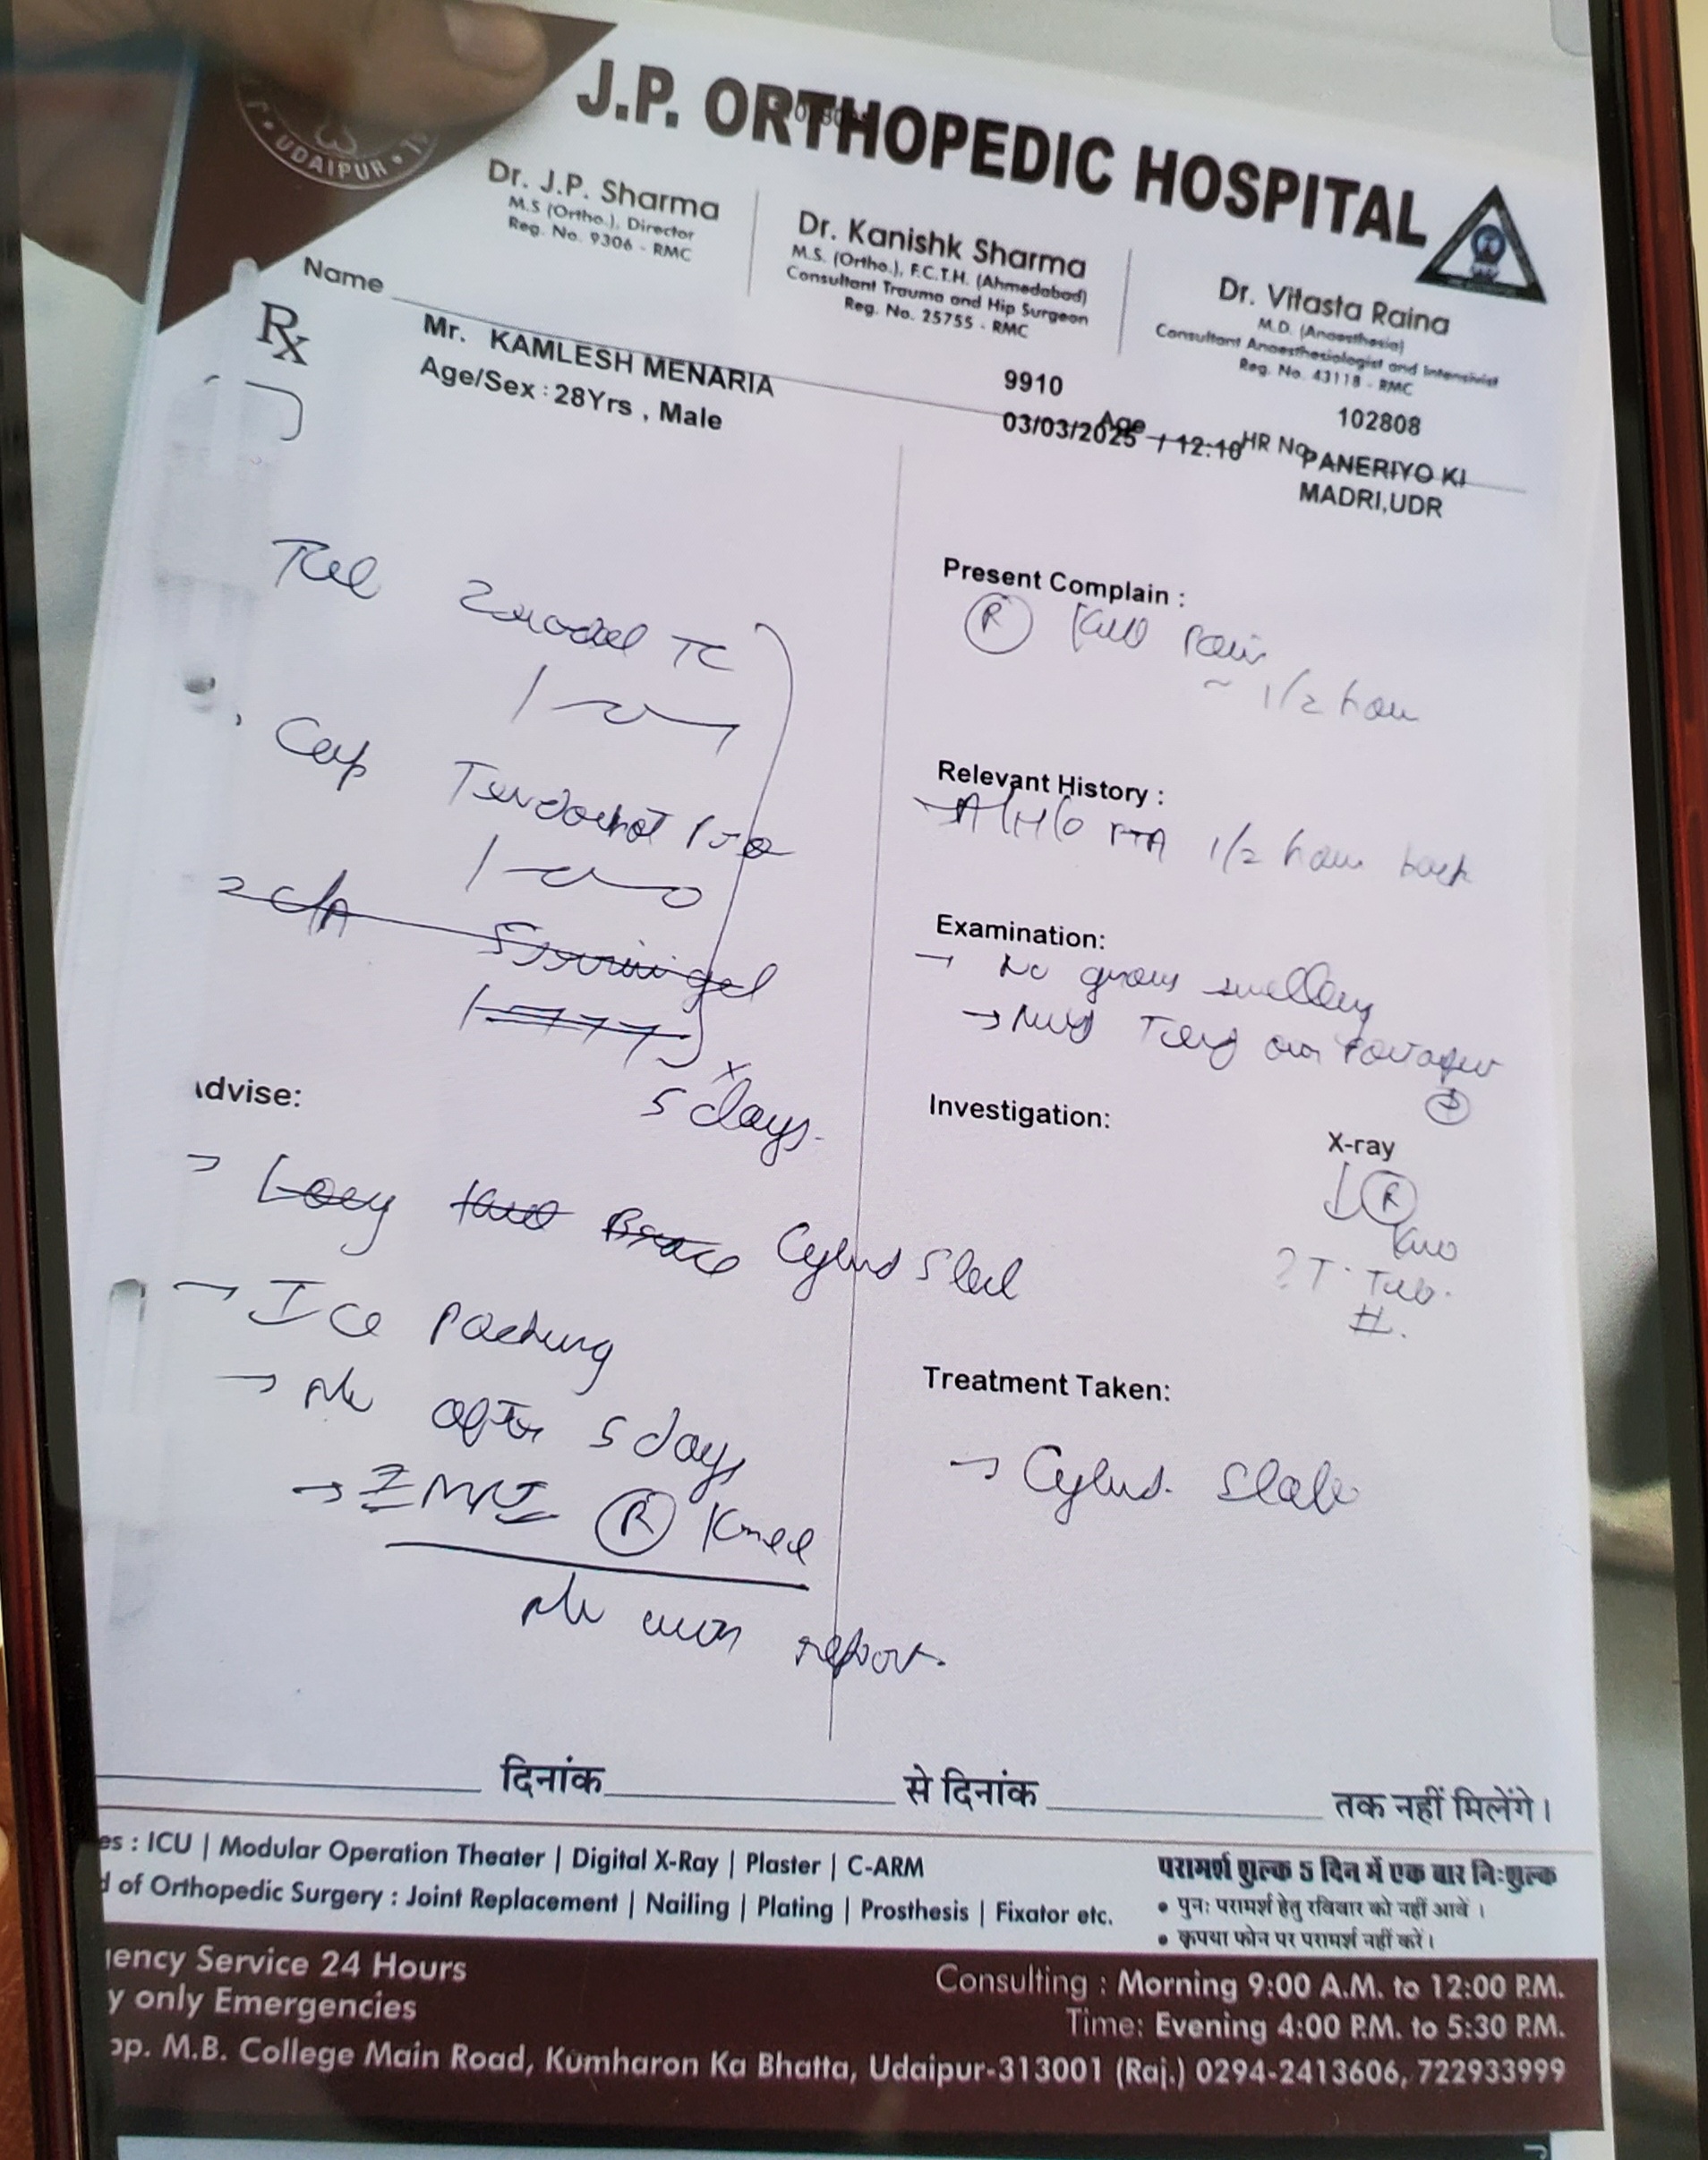 J.P. ORTHOPEDIC HOSPITAL
UDAIPUR
Dr. J.P. Sharma
M.S (Ortho.), Director
Reg. No. 9306 - RMC
Dr. Kanishk Sharma
M.S. (Ortho.), F.C.T.H. (Ahmedabad)
Consultant Trauma and Hip Surgeon
Reg. No. 25755 - RMC
Dr. Vitasta Raina
M.D. (Anaesthesia)
Consultant Anaesthesiologist and Intensivist
Reg. No. 43118 - RMC
Name
Rx
Mr. KAMLESH MENARIA
Age/Sex : 28Yrs , Male
9910
03/03/2025 / 12:16
Age
HR No.
102808
PANERIYO KI
MADRI,UDR
TC
Cap
gel
5 days.
Present Complain :
R Knee Pain
~ 1/2 hour
Relevant History :
A/H/O RTA 1/2 hour back
Examination:
→ No gross swelling
→
Investigation:
X-ray
R
Knee
Treatment Taken:
→ Slab
Advise:
→ Long Knee Brace Slab
→ Ice Packing
→ after 5 days
→ MRI R Knee
report.
दिनांक से दिनांक तक नहीं मिलेंगे।
es : ICU | Modular Operation Theater | Digital X-Ray | Plaster | C-ARM
d of Orthopedic Surgery : Joint Replacement | Nailing | Plating | Prosthesis | Fixator etc.
परामर्श शुल्क 5 दिन में एक बार निःशुल्क
• पुनः परामर्श हेतु रविवार को नहीं आवें ।
• कृपया फोन पर परामर्श नहीं करें।
gency Service 24 Hours
y only Emergencies
Consulting : Morning 9:00 A.M. to 12:00 P.M.
Time: Evening 4:00 P.M. to 5:30 P.M.
pp. M.B. College Main Road, Kumharon Ka Bhatta, Udaipur-313001 (Raj.) 0294-2413606, 722933999